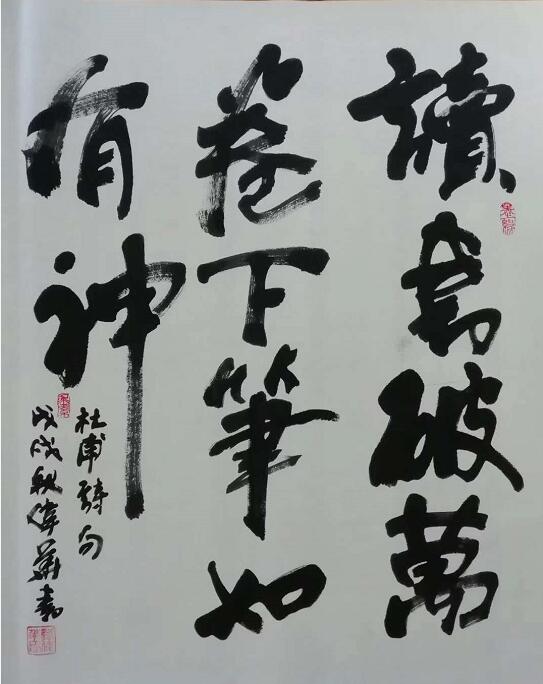 讀書破萬
卷下筆如
有神
杜甫詩句
戊戌秋偉華書